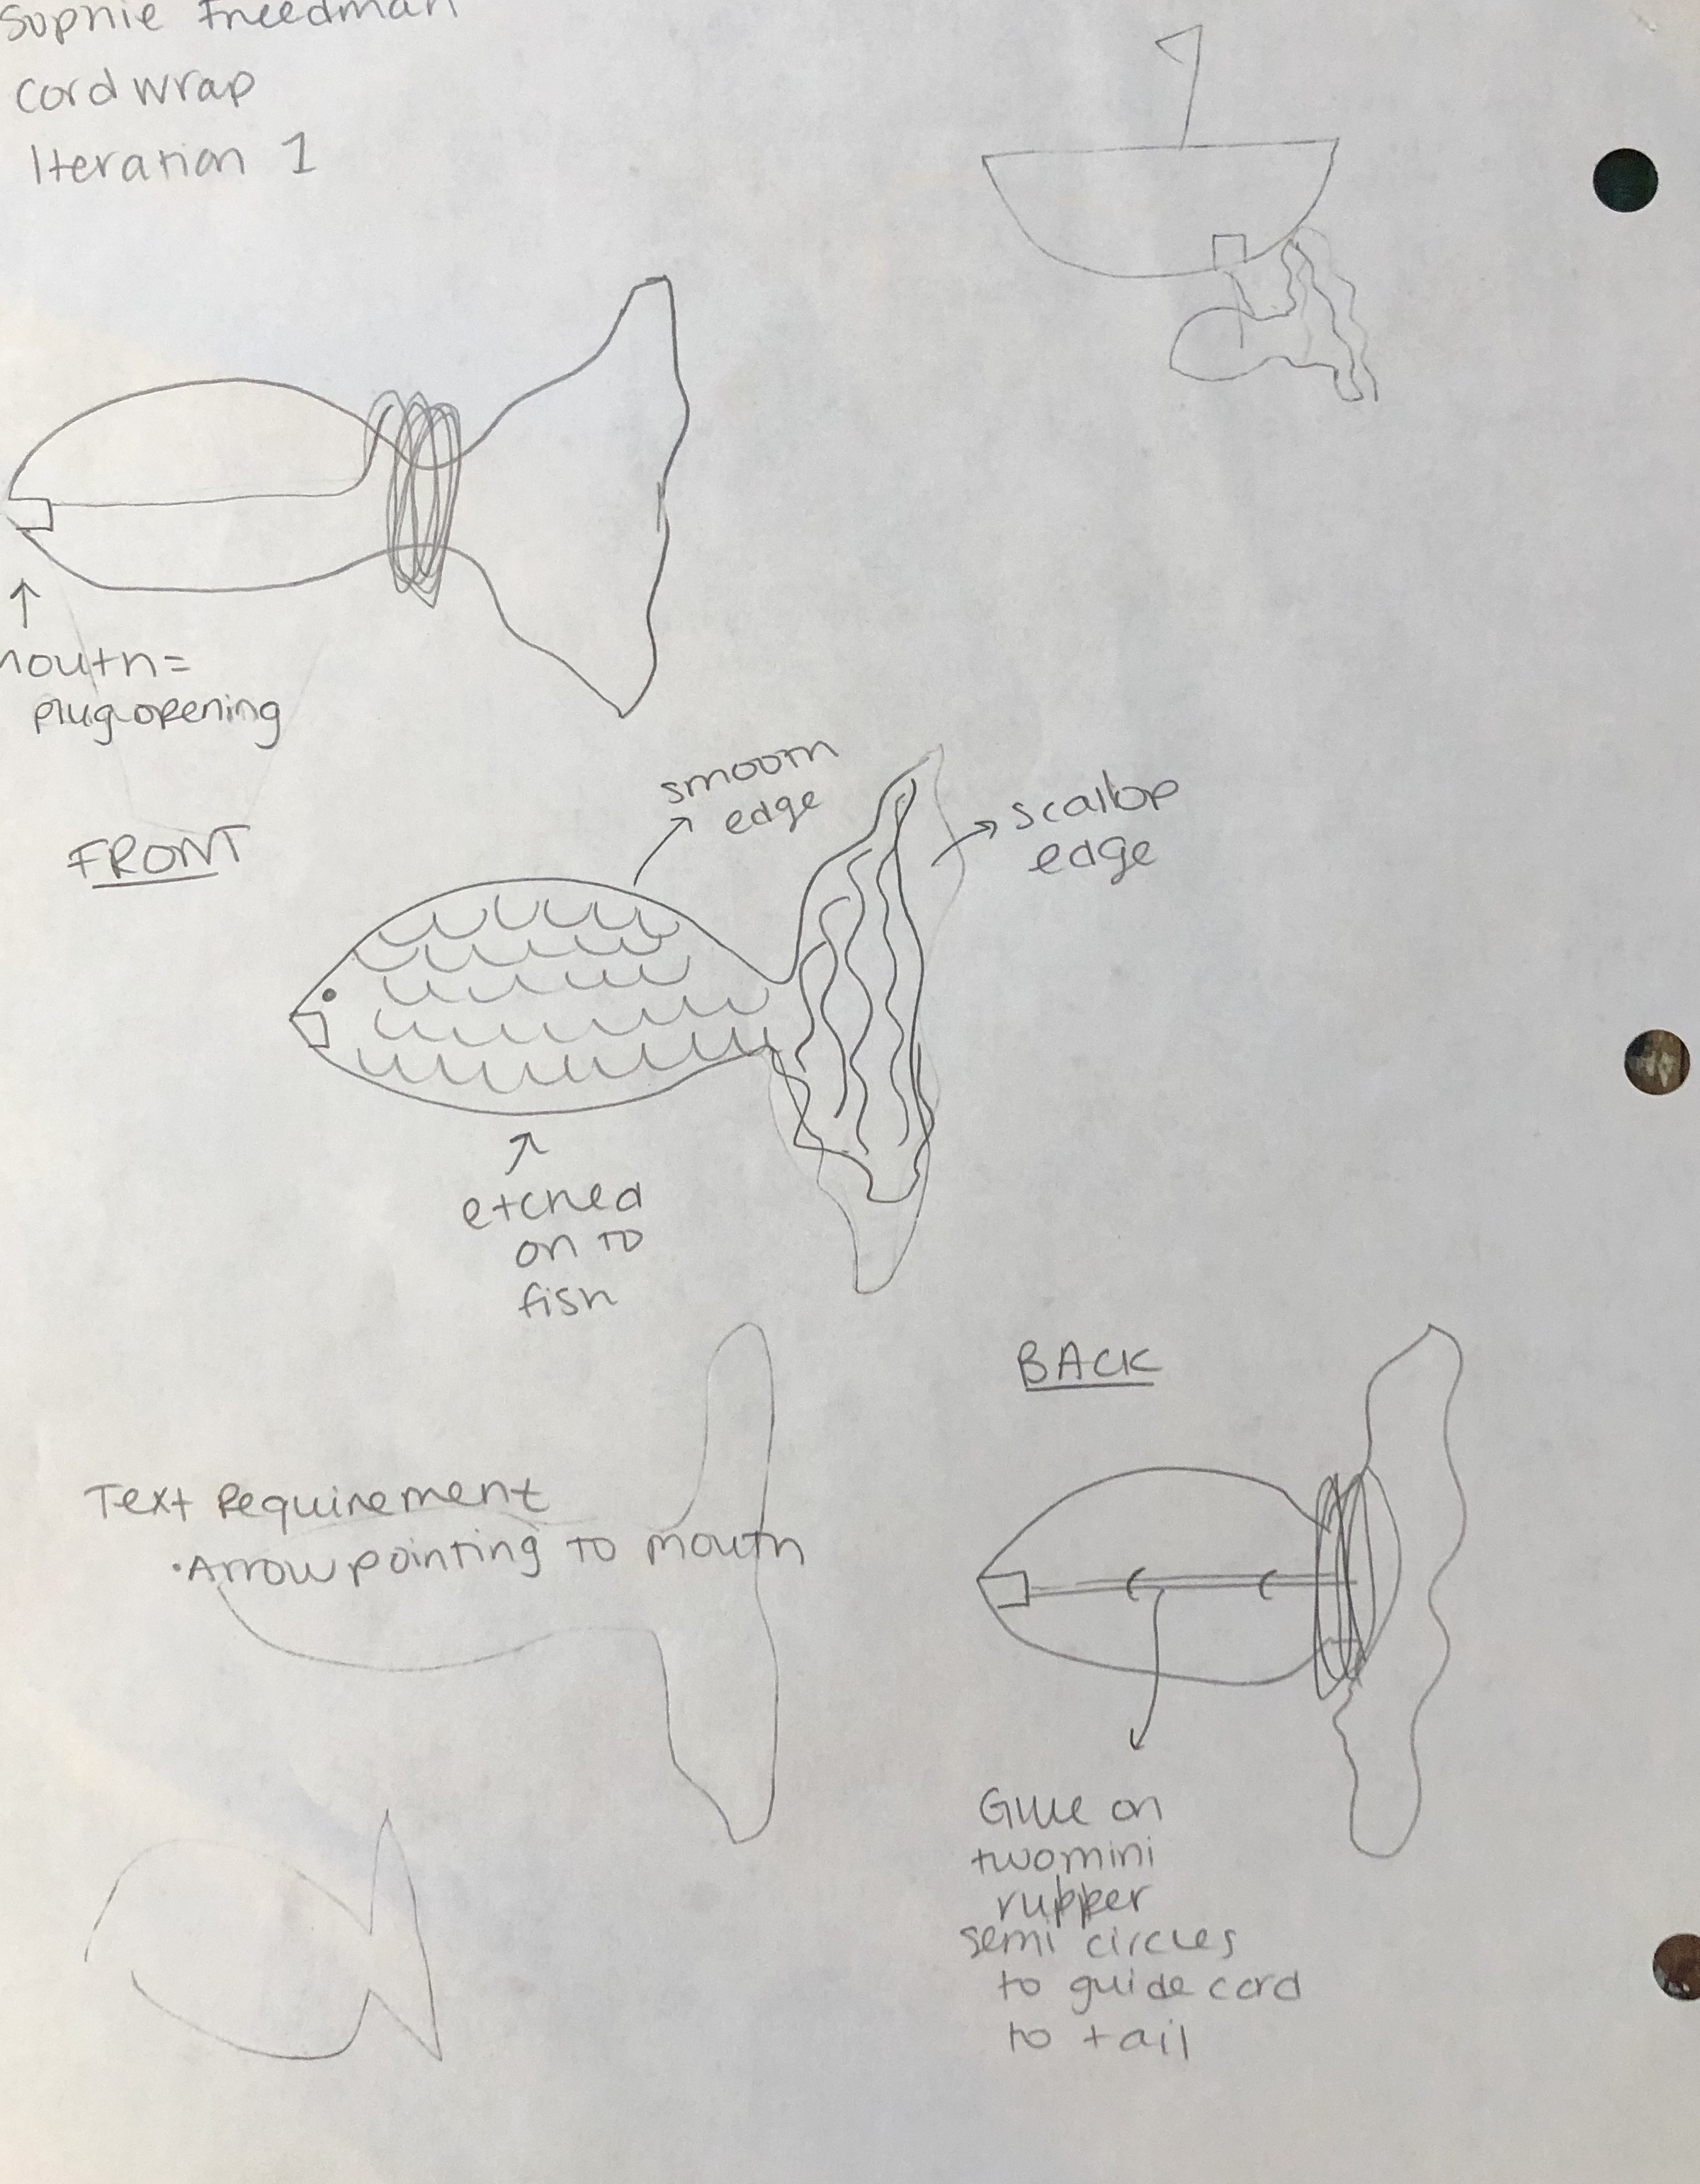 Sophie Freedman
Cord wrap
Iteration 1
mouth=
plug opening
smooth
edge
scallop
edge
FRONT
etched
on to
fish
BACK
Text Requirement
• Arrow pointing to mouth
Glue on
two mini
rubber
semi circles
to guide cord
to tail